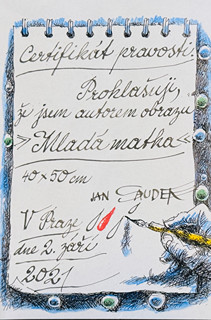 Certifikát pravosti:
Prohlašuji,
že jsem autorem obrazu
»Mladá matka«
40 x 50 cm
JAN SAUDEK
V Praze
dne 2. září
2021